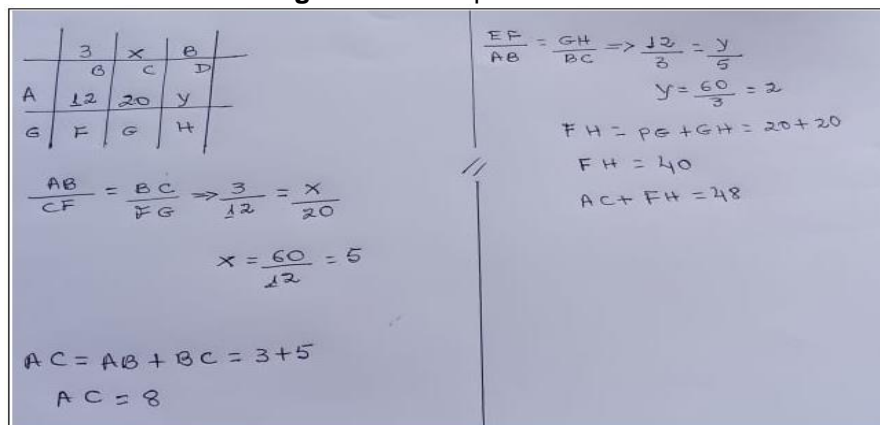 3 x B
B C D
A 12 20 y
G F G H
AB/CF = BC/FG => 3/12 = x/20
x = 60/12 = 5
AC = AB + BC = 3+5
AC = 8
EF/AB = GH/BC => 12/3 = y/5
y = 60/3 = 2
FH = PG + GH = 20+20
FH = 40
AC + FH = 48